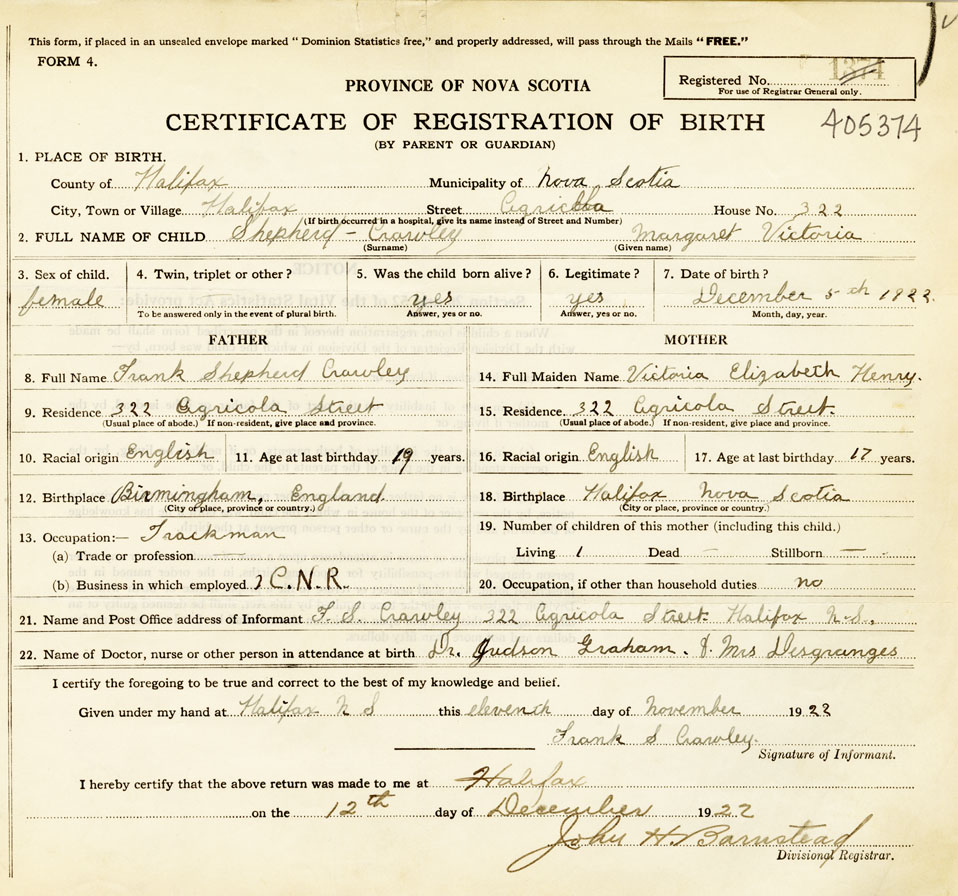 This form, if placed in an unsealed envelope marked "Dominion Statistics free," and properly addressed, will pass through the Mails "FREE."
FORM 4.
Registered No. 1374
For use of Registrar General only.
PROVINCE OF NOVA SCOTIA
CERTIFICATE OF REGISTRATION OF BIRTH 405374
(BY PARENT OR GUARDIAN)
1. PLACE OF BIRTH.
County of Halifax Municipality of Nova Scotia
City, Town or Village Halifax Street House No. 322
(If birth occurred in a hospital, give its name instead of Street and Number)
2. FULL NAME OF CHILD Shepherd - Crawley Margaret Victoria
(Surname) (Given name)
3. Sex of child. 4. Twin, triplet or other? 5. Was the child born alive? 6. Legitimate? 7. Date of birth?
female yes yes December 5th 1922.
To be answered only in the event of plural birth. Answer, yes or no. Answer, yes or no. Month, day, year.
FATHER MOTHER
8. Full Name Frank Shepherd Crawley 14. Full Maiden Name Victoria Elizabeth Henry.
9. Residence 322 Agricola Street 15. Residence. 322 Agricola Street.
(Usual place of abode.) If non-resident, give place and province. (Usual place of abode.) If non-resident, give place and province.
10. Racial origin English 11. Age at last birthday 19 years. 16. Racial origin English 17. Age at last birthday 17 years.
12. Birthplace Birmingham, England. 18. Birthplace Halifax Nova Scotia
(City or place, province or country.) (City or place, province or country.)
13. Occupation:— Trackman 19. Number of children of this mother (including this child.)
(a) Trade or profession — Living 1 Dead — Stillborn —
(b) Business in which employed C.N.R. 20. Occupation, if other than household duties no
21. Name and Post Office address of Informant F. S. Crawley 322 Agricola Street Halifax N.S.,
22. Name of Doctor, nurse or other person in attendance at birth Dr. Judson Graham. & Mrs Desgranges
I certify the foregoing to be true and correct to the best of my knowledge and belief.
Given under my hand at Halifax N S this eleventh day of November 1922
Frank S Crawley.
Signature of Informant.
I hereby certify that the above return was made to me at Halifax
on the 12th day of December 1922
John H. Barnstead
Divisional Registrar.